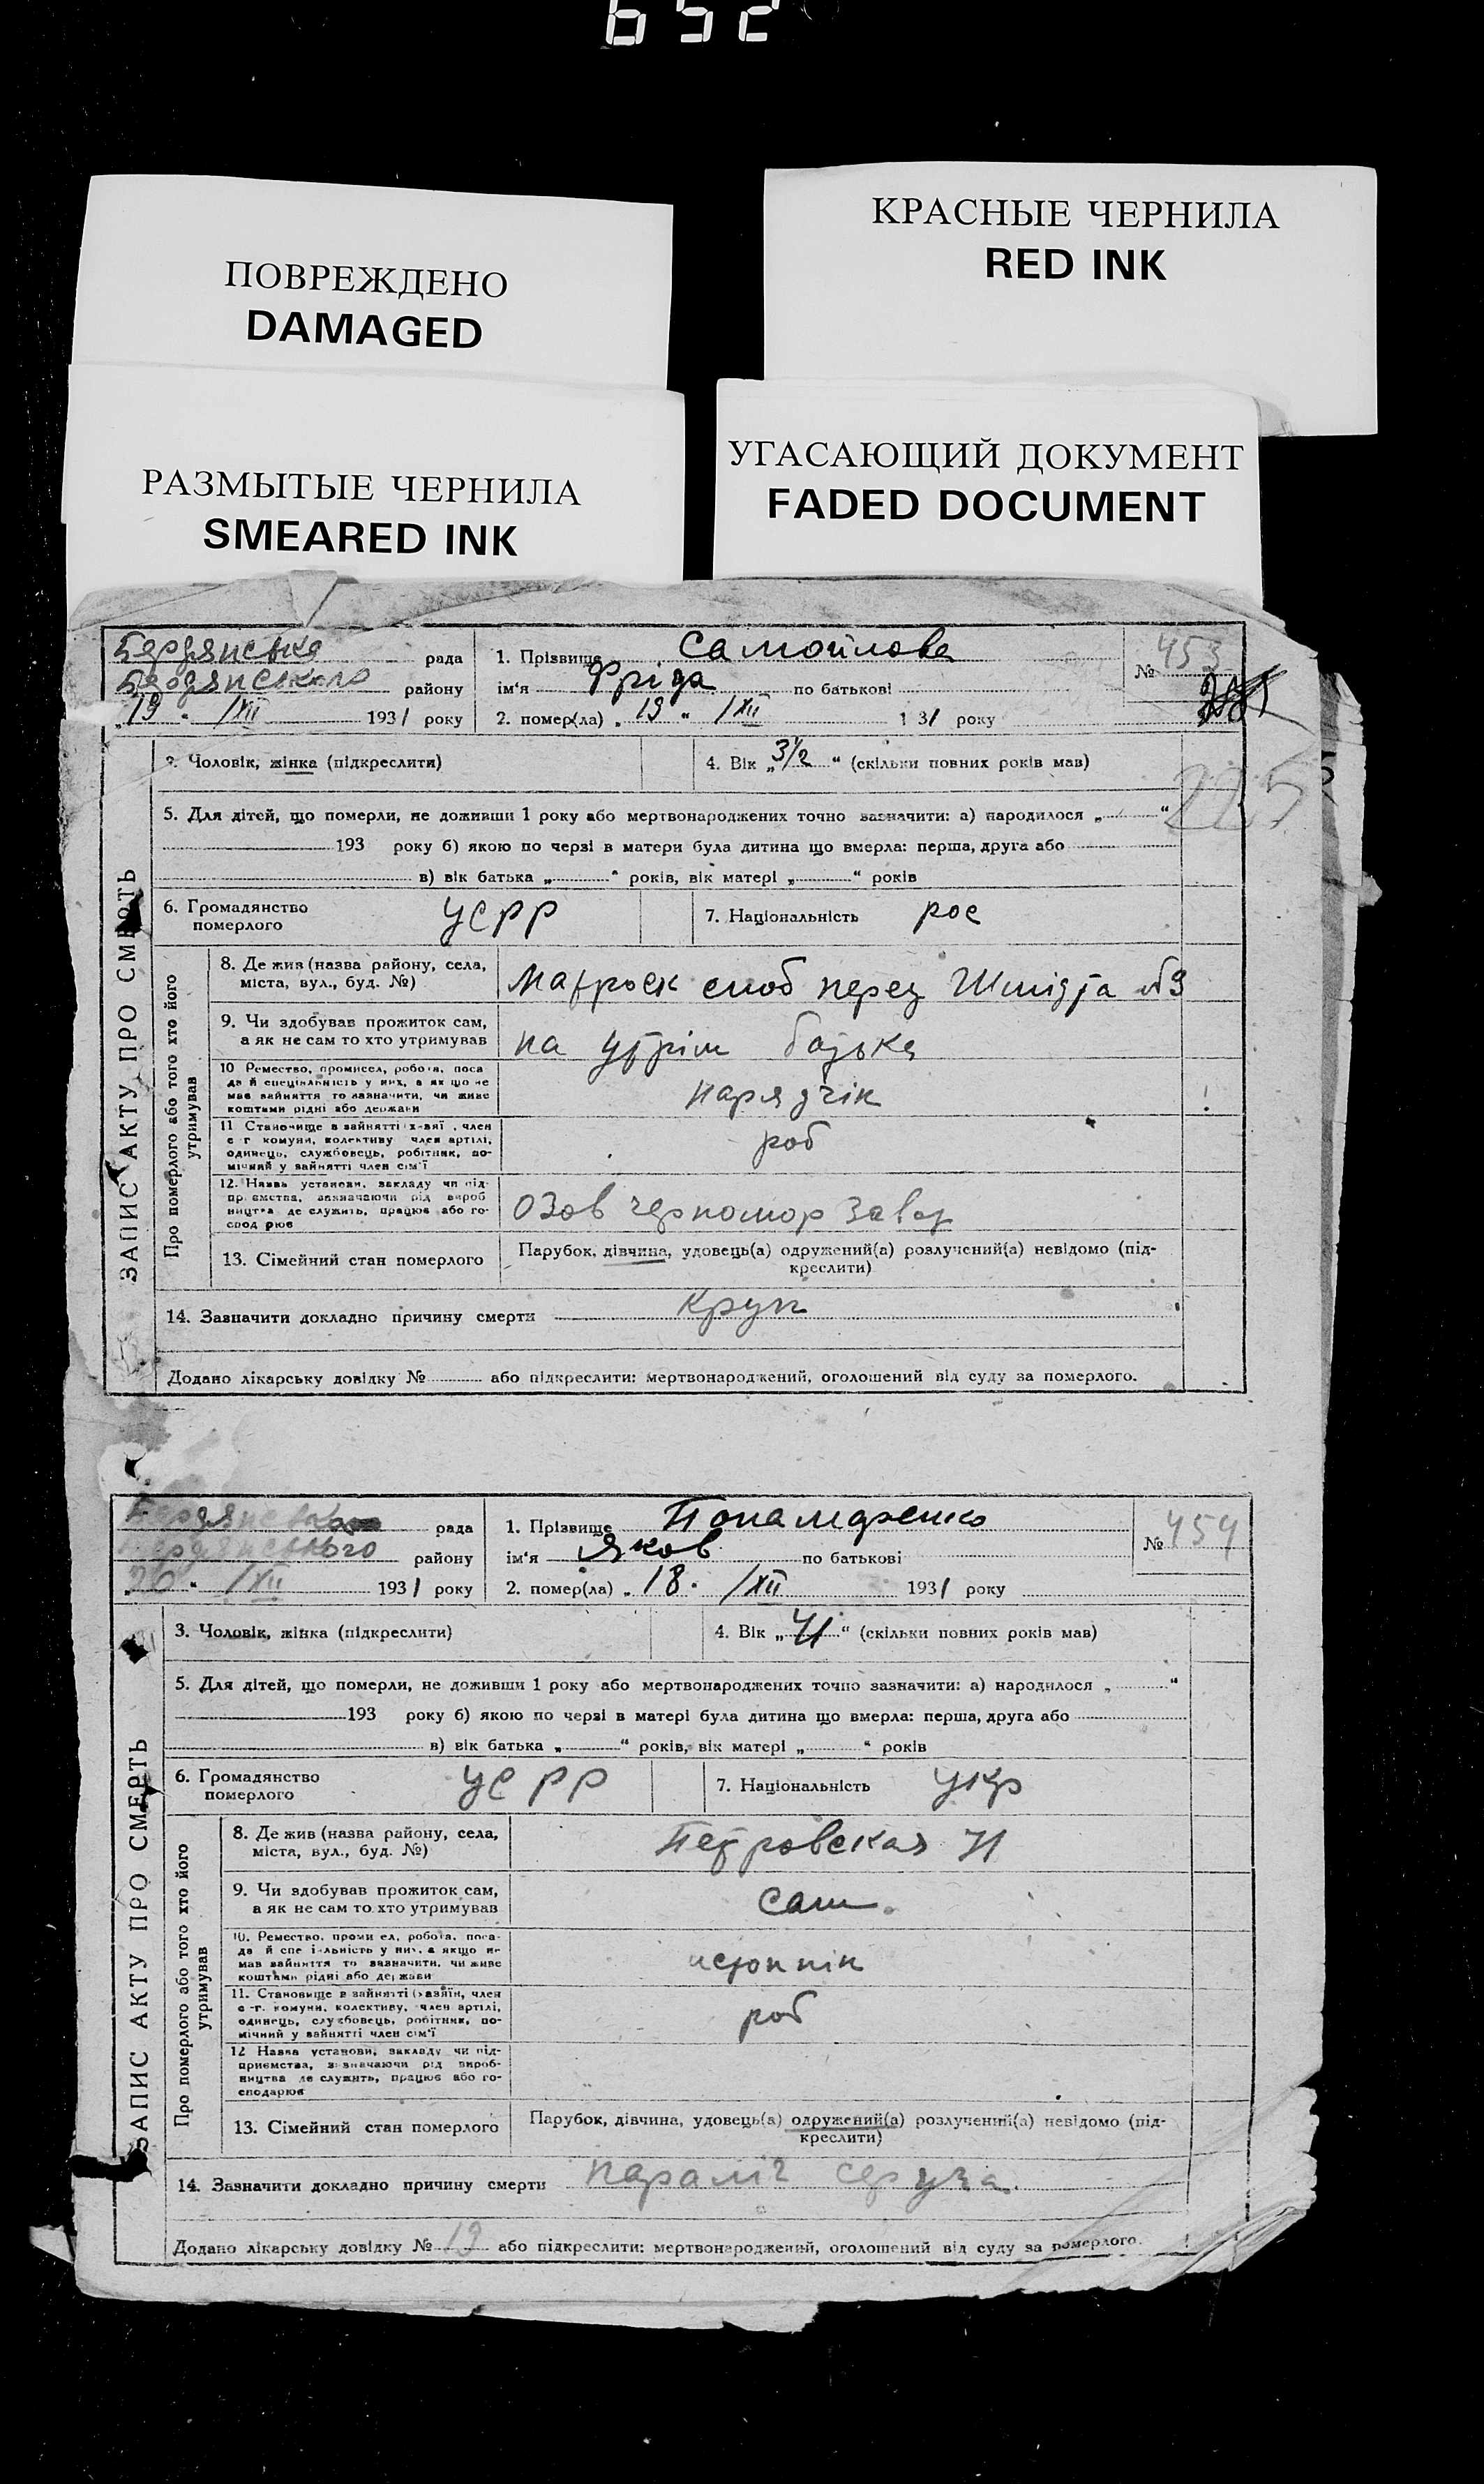 652
ПОВРЕЖДЕНО
DAMAGED
КРАСНЫЕ ЧЕРНИЛА
RED INK
РАЗМЫТЫЕ ЧЕРНИЛА
SMEARED INK
УГАСАЮЩИЙ ДОКУМЕНТ
FADED DOCUMENT
ЗАПИС АКТУ ПРО СМЕРТЬ
Бердянська рада
Бердянського району
„19“ /XII 1931 року
1. Прізвище Самойлова
ім'я Фріда по батькові
2. помер(ла) „19“ /XII 1 31 року
№ 453
225
Чоловік, жінка (підкреслити)
4. Вік „3½“ (скільки повних років мав)
5. Для дітей, що померли, не доживши 1 року або мертвонароджених точно зазначити: а) народилося „ “
193 року б) якою по черзі в матери була дитина що вмерла: перша, друга або
в) вік батька „ “ років, вік матері „ “ років
6. Громадянство померлого УСРР
7. Національність рос
Про померлого або того хто його утримував
8. Де жив (назва району, села, міста, вул., буд. №) Матроск слоб перец Шмідта №3
9. Чи здобував прожиток сам, а як не сам то хто утримував на утрім батька
10 Ремество, промисел, робота, поса
да й спеціальність у них, а як що не
має зайняття то зазначити, чи живе
коштами рідні або держави
нарядчік
11 Становище в зайнятті х-вяї , член
с г комуни, колективу член артілі,
одинець, службовець, робітник, по-
мічний у зайнятті член сім'ї
роб
12. Назва установи, закладу чи під-
пр ємства, зазначаючи рід вироб
ництва де служить, працює або го-
спод рює
Озов черномор завод
13. Сімейний стан померлого Парубок, дівчина, удовець(а) одружений(а) розлучений(а) невідомо (під-
креслити)
14. Зазначити докладно причину смерти круп
Додано лікарську довідку № або підкреслити: мертвонароджений, оголошений від суду за померлого.
ЗАПИС АКТУ ПРО СМЕРТЬ
Бердянська рада
Бердянського району
„20“ /XII 1931 року
1. Прізвище
ім'я Яков по батькові
2. помер(ла) „18. /XII 1931 року
№ 454
3. Чоловік, жінка (підкреслити)
4. Вік „41“ (скільки повних років мав)
5. Для дітей, що померли, не доживши 1 року або мертвонароджених точно зазначити: а) народилося „ “
193 року б) якою по черзі в матері була дитина що вмерла: перша, друга або
в) вік батька „ “ років, вік матері „ “ років
6. Громадянство померлого УСРР
7. Національність укр
Про померлого або того хто його утримував
8. Де жив (назва району, села, міста, вул., буд. №) Петровская
9. Чи здобував прожиток сам, а як не сам то хто утримував сам.
10. Ремество, проми ел, робота, поса-
да й спе і-льність у них, а якщо не
мав зайняття то зазначити, чи живе
коштами рідні або держави
істопнік
11. Становище в зайнятті (хазяїн, член
с -г. комуни, колективу, член артілі,
одинець, службовець, робітник, по-
мічний у зайнятті член сім'ї
роб
12 Назва установи, закладу чи під-
приємства, зазначаючи рід вироб-
ництва де служить, працює або го-
сподарює
13. Сімейний стан померлого Парубок, дівчина, удовець(а) одружений(а) розлучений(а) невідомо (під-
креслити)
14. Зазначити докладно причину смерти параліч серуза
Додано лікарську довідку № 19 або підкреслити: мертвонароджений, оголошений від суду за померлого.